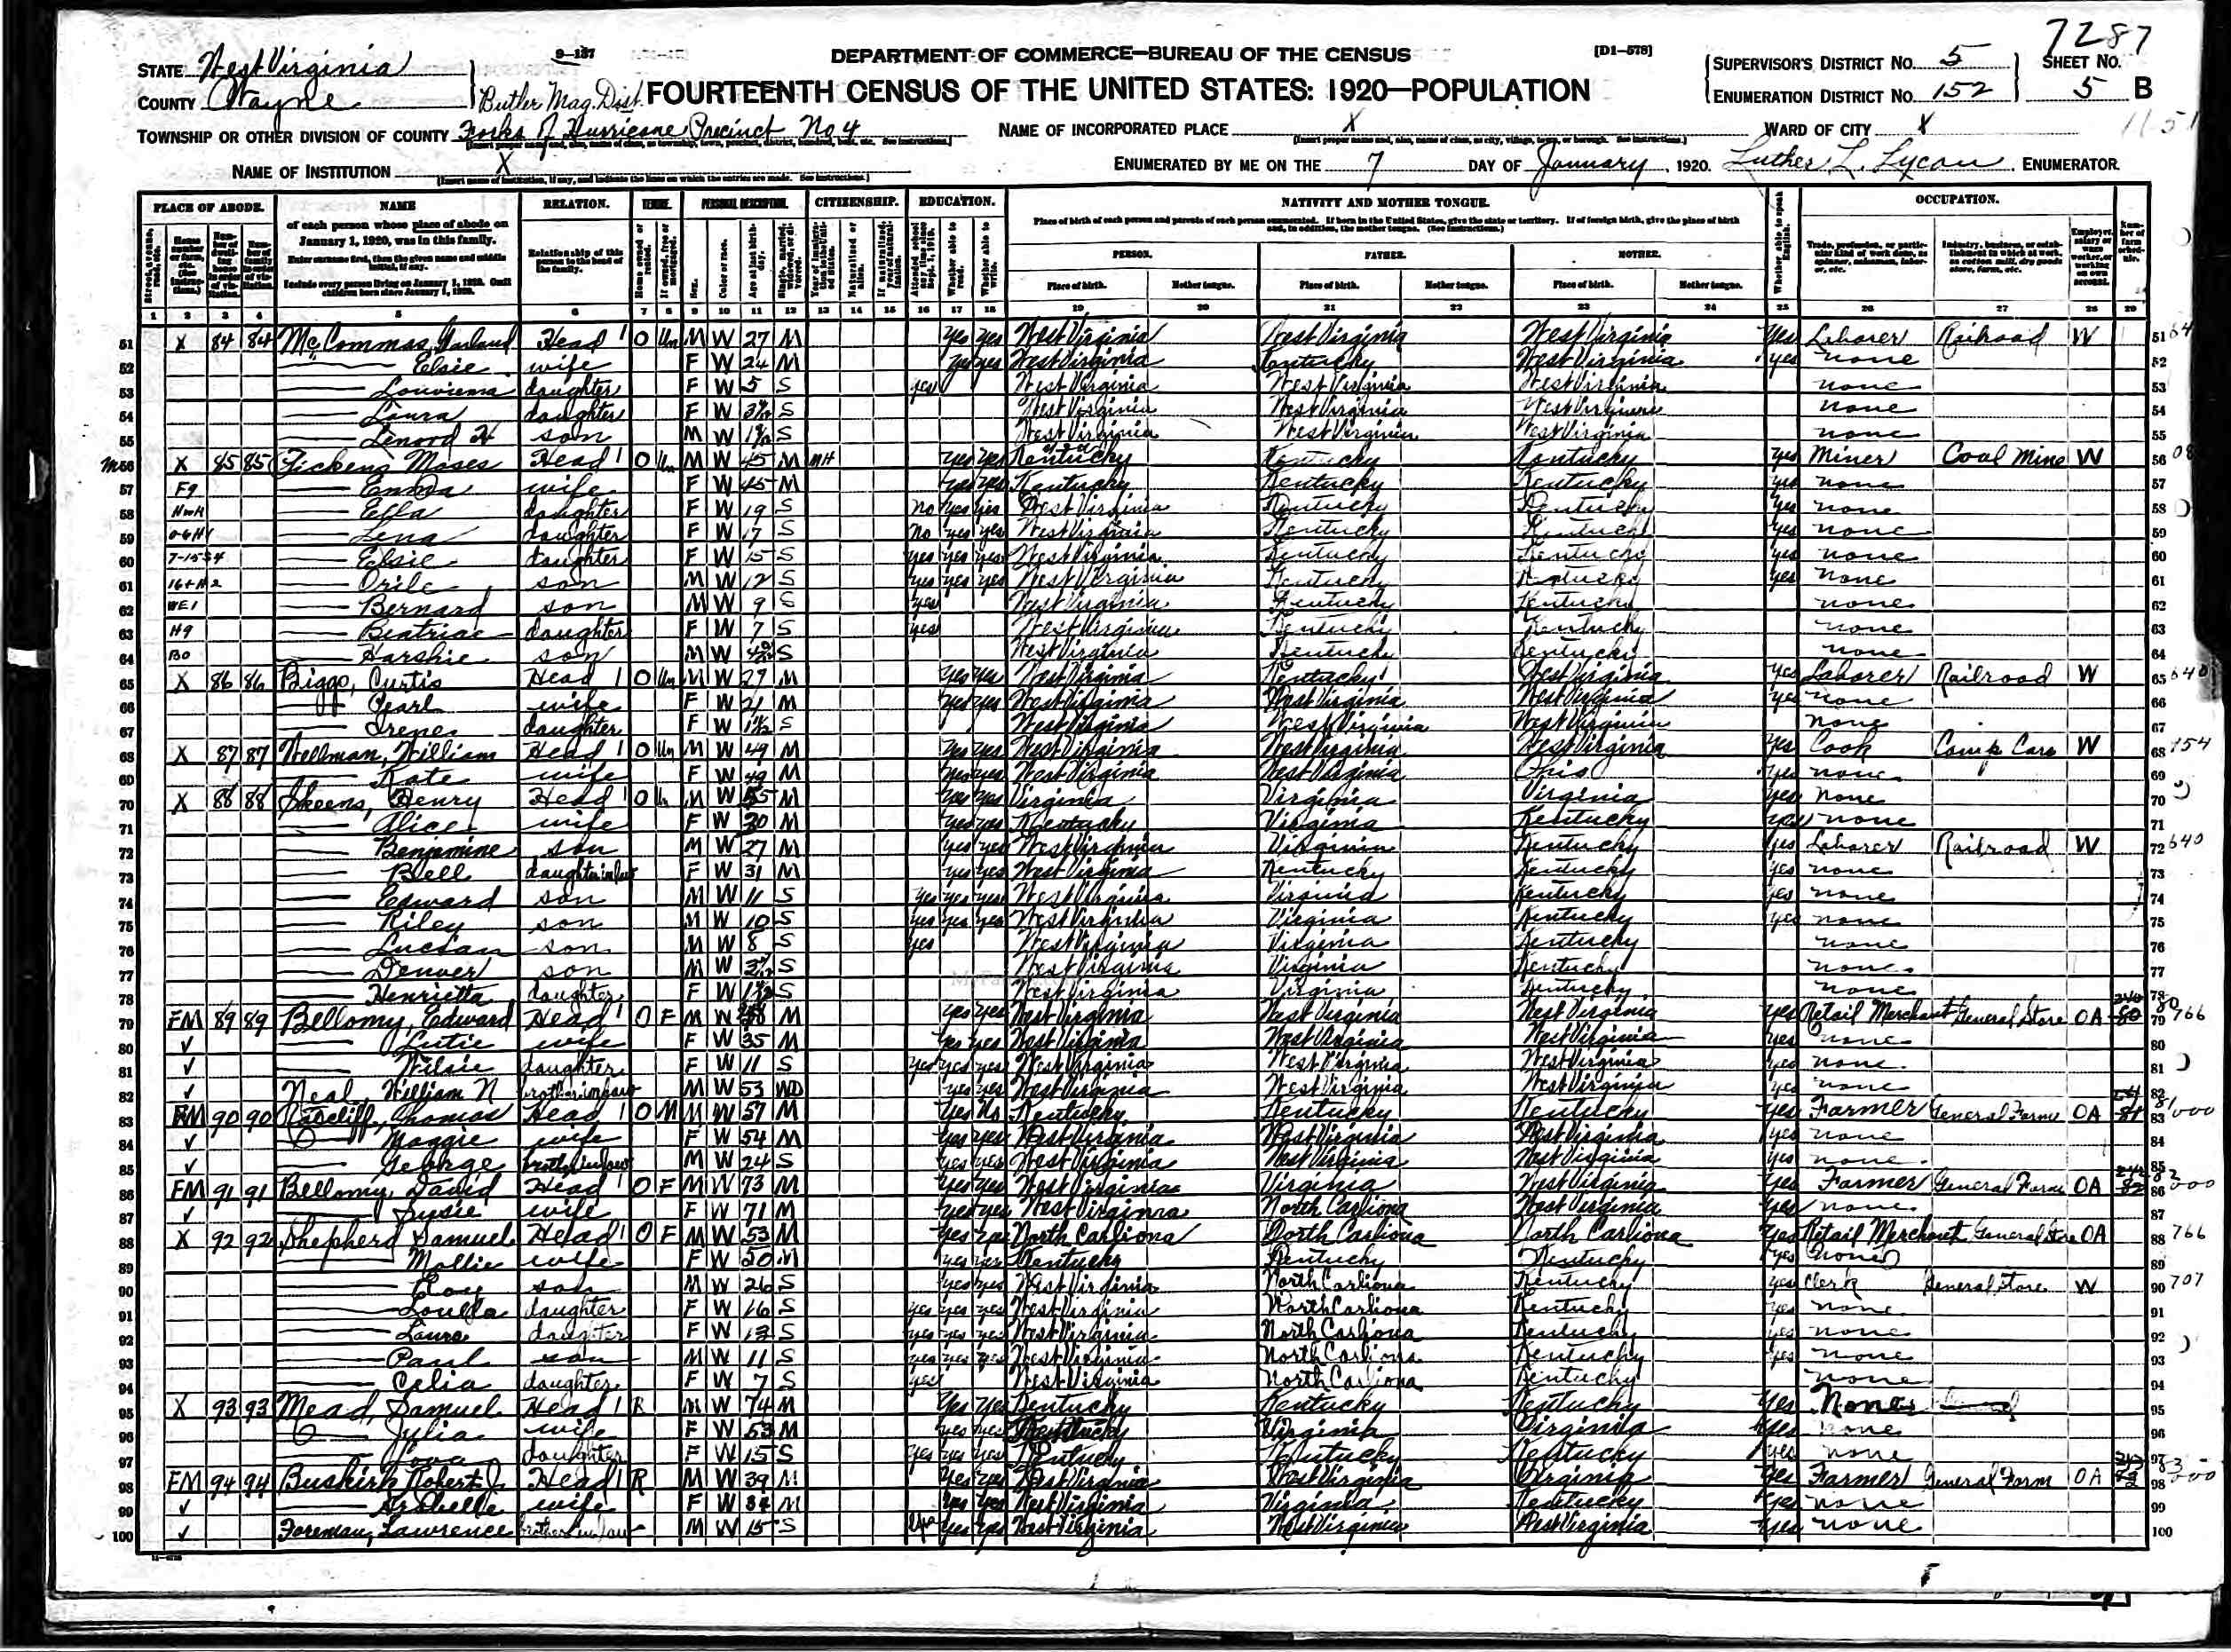 7287
9-137
DEPARTMENT OF COMMERCE—BUREAU OF THE CENSUS
[D1-578]
STATE West Virginia
COUNTY Wayne
Butler Mag. Dist.
FOURTEENTH CENSUS OF THE UNITED STATES: 1920—POPULATION
SUPERVISOR'S DISTRICT No. 5
SHEET No.
ENUMERATION DISTRICT No. 152
5 B
TOWNSHIP OR OTHER DIVISION OF COUNTY Forks of Hurricane Precinct No 4
NAME OF INCORPORATED PLACE X
WARD OF CITY X
NAME OF INSTITUTION X
ENUMERATED BY ME ON THE 7 DAY OF January, 1920. Luther L. Lycan, ENUMERATOR.
PLACE OF ABODE. NAME RELATION. TENURE. PERSONAL DESCRIPTION. CITIZENSHIP. EDUCATION. NATIVITY AND MOTHER TONGUE. OCCUPATION.
of each person whose place of abode on January 1, 1920, was in this family.
Enter surname first, then the given name and middle initial, if any.
Include every person living on January 1, 1920. Omit children born since January 1, 1920.
Relationship of this person to the head of the family.
Place of birth of each person and parents of each person enumerated. If born in the United States, give the state or territory. If of foreign birth, give the place of birth and, in addition, the mother tongue. (See Instructions.)
PERSON. FATHER. MOTHER.
Place of birth. Mother tongue. Place of birth. Mother tongue. Place of birth. Mother tongue.
1 2 3 4 5 6 7 8 9 10 11 12 13 14 15 16 17 18 19 20 21 22 23 24 25 26 27 28 29
51 X 84 84 McCommas, Garland Head 1 O Un M W 27 M yes yes West Virginia West Virginia West Virginia yes Laborer Railroad W 51
52 Elsie wife F W 24 M yes yes West Virginia Kentucky West Virginia yes none 52
53 Louviema daughter F W 5 S yes West Virginia West Virginia West Virginia none 53
54 Laura daughter F W S West Virginia West Virginia West Virginia none 54
55 Lenord H son M W S West Virginia West Virginia West Virginia none 55
56 X 85 85 Fickens Moses Head 1 O Un M W 45 M yes yes Kentucky Kentucky Kentucky yes Miner Coal Mine W 56
57 Emma wife F W 45 M yes yes Kentucky Kentucky Kentucky yes none 57
58 Ella daughter F W 19 S No yes yes West Virginia Kentucky Kentucky yes none 58
59 Lena daughter F W 17 S No yes yes West Virginia Kentucky Kentucky yes none 59
60 Elsie daughter F W 15 S yes yes yes West Virginia Kentucky Kentucky yes none 60
61 Orile son M W 12 S yes yes yes West Virginia Kentucky Kentucky yes none 61
62 Bernard son M W 9 S yes West Virginia Kentucky Kentucky none 62
63 Beatriac daughter F W 7 S yes West Virginia Kentucky Kentucky none 63
64 Harshie son M W S West Virginia Kentucky Kentucky none 64
65 X 86 86 Biggs, Curtis Head 1 O Un M W 27 M yes yes West Virginia Kentucky West Virginia yes Laborer Railroad W 65 640
66 Pearl wife F W 21 M yes yes West Virginia West Virginia West Virginia yes none 66
67 Irene daughter F W S West Virginia West Virginia West Virginia none 67
68 X 87 87 Wellman, William Head 1 O Un M W 49 M yes yes West Virginia West Virginia West Virginia yes Cook Camp Cars W 68
69 Kate wife F W 49 M yes yes West Virginia West Virginia Ohio yes none 69
70 X 88 88 Skeens, Henry Head 1 O Un M W 55 M yes yes Virginia Virginia Virginia yes none 70
71 Alice wife F W 30 M yes yes Kentucky Virginia Kentucky yes none 71
72 Benjamine son M W 27 M yes yes West Virginia Virginia Kentucky yes Laborer Railroad W 72 640
73 Bell daughter in law F W 31 M yes yes West Virginia Kentucky Kentucky yes none 73
74 Edward son M W 11 S yes yes yes West Virginia Virginia Kentucky yes none 74
75 Riley son M W 10 S yes yes yes West Virginia Virginia Kentucky yes none 75
76 Lucian son M W 8 S yes West Virginia Virginia Kentucky none 76
77 Denver son M W S West Virginia Virginia Kentucky none 77
78 Henrietta daughter F W S West Virginia Virginia Kentucky none 78
79 FM 89 89 Bellomy, Edward Head 1 O F M W M yes yes West Virginia West Virginia West Virginia yes Retail Merchant General Store OA 80 79 766
80 ✓ Lutie wife F W 35 M yes yes West Virginia West Virginia West Virginia yes none 80
81 ✓ Wilsie daughter F W 11 S yes yes yes West Virginia West Virginia West Virginia yes none 81
82 ✓ Neal, William N brother in law M W 53 WD yes yes West Virginia West Virginia West Virginia yes none 82
83 FM 90 90 Ratcliff, Thomas Head 1 O M M W 57 M yes No Kentucky Kentucky Kentucky yes Farmer General Farm OA 81 83 000
84 ✓ Maggie wife F W 54 M yes yes West Virginia West Virginia West Virginia yes none 84
85 ✓ George brother in law M W 24 S yes yes West Virginia West Virginia West Virginia yes none 85
86 FM 91 91 Bellomy, David Head 1 O F M W 73 M yes yes West Virginia Virginia West Virginia yes Farmer General Farm OA 82 86 000
87 ✓ Susie wife F W 71 M yes yes West Virginia North Carliona West Virginia yes none 87
88 X 92 92 Shepherd Samuel Head 1 O F M W 53 M yes yes North Carliona North Carliona North Carliona yes Retail Merchant General Store OA 88 766
89 Mollie wife F W 50 M yes yes Kentucky Kentucky Kentucky yes none 89
90 son M W 26 S yes yes West Virginia North Carliona Kentucky yes Clerk General Store W 90 707
91 Louella daughter F W 16 S yes yes yes West Virginia North Carliona Kentucky yes none 91
92 Laura daughter F W 13 S yes yes yes West Virginia North Carliona Kentucky yes none 92
93 Paul son M W 11 S yes yes yes West Virginia North Carliona Kentucky yes none 93
94 Celia daughter F W 7 S yes West Virginia North Carliona Kentucky none 94
95 X 93 93 Mead, Samuel Head 1 R M W 74 M yes yes Kentucky Kentucky Kentucky yes None 95
96 Julia wife F W 53 M yes yes Kentucky Virginia Virginia yes none 96
97 Iova daughter F W 15 S yes yes yes Kentucky Kentucky Kentucky yes none 97
98 FM 94 94 Buskirk Robert J. Head 1 R M W 39 M yes yes West Virginia West Virginia Virginia yes Farmer General Farm OA 98 000
99 ✓ Arabelle wife F W 34 M yes yes West Virginia Virginia Kentucky yes none 99
100 ✓ Foreman, Lawrence brother in law M W 15 S yes yes yes West Virginia West Virginia West Virginia yes none 100